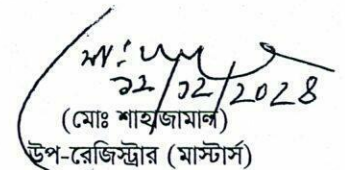 ১২/১২/২০২৪
(মোঃ শাহজামাল)
উপ-রেজিস্ট্রার (মাস্টার্স)